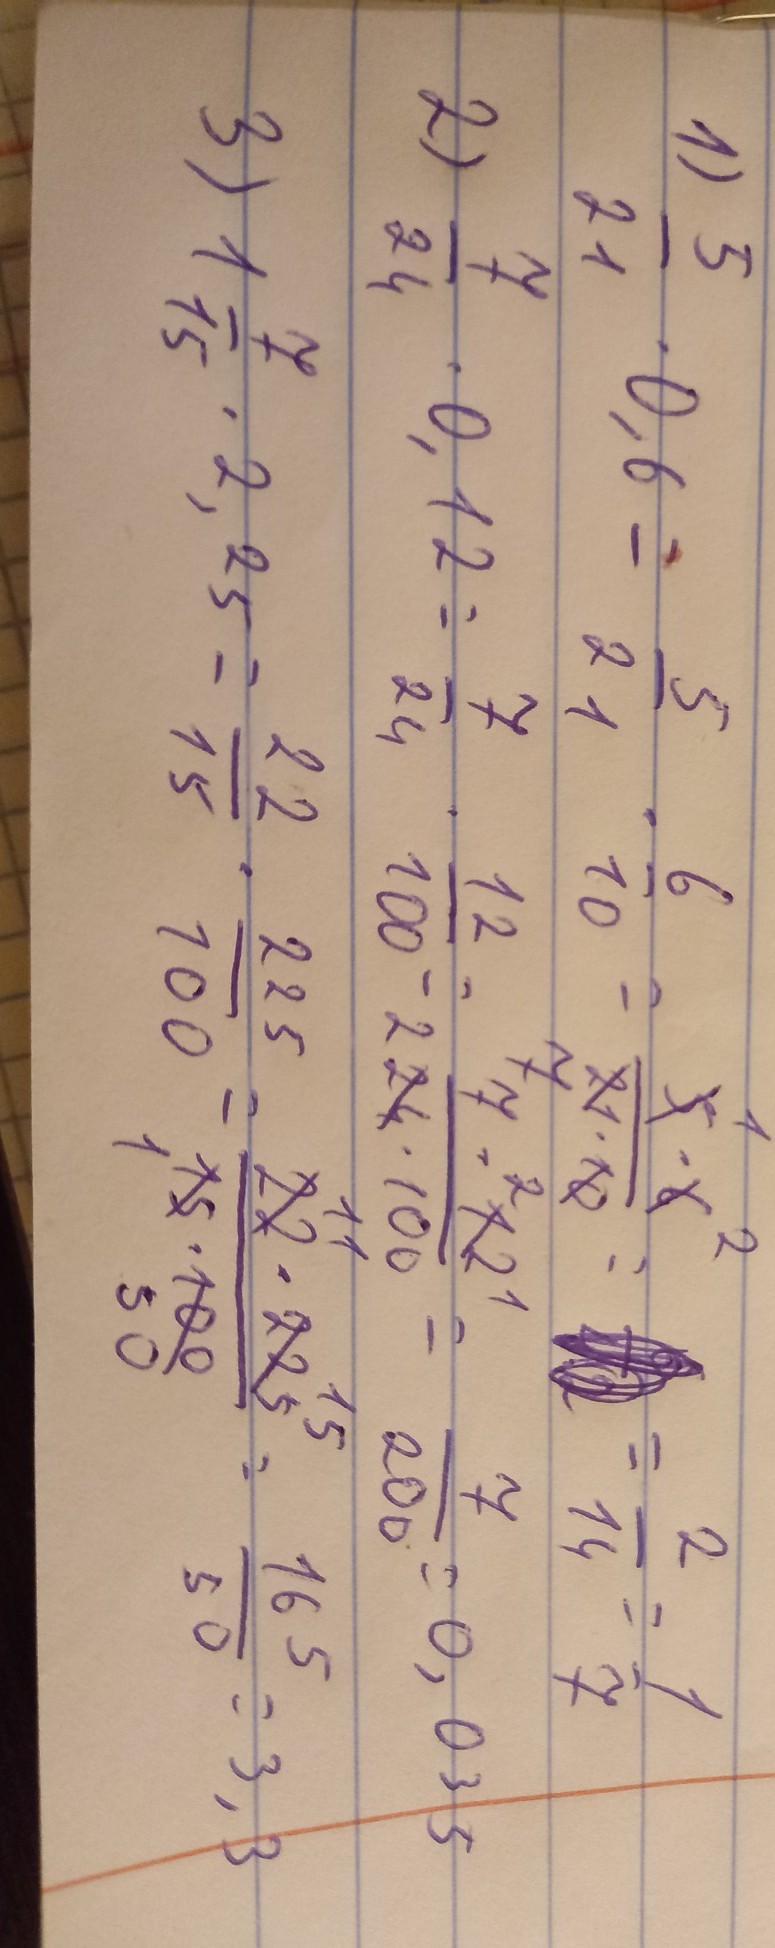 1) 5/21 · 0,6 = 5/21 · 6/10 = 5¹ · 6²/21 7 · 10 = = 2/14 = 1/7
2) 7/24 · 0,12 = 7/24 · 12/100 = 7 · 12 1/2 24 · 100 = 7/200 = 0,035
3) 1 7/15 · 2,25 = 22/15 · 225/100 = 22 11 · 225 15/15 1 · 100 50 = 165/50 = 3,3